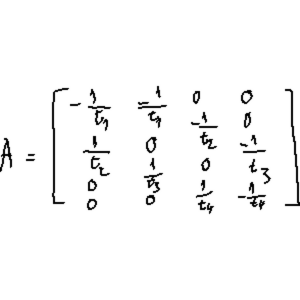 A = [ -1/t₁ -1/t₁ 0 0
1/t₂ 0 -1/t₂ 0
0 1/t₃ 0 -1/t₃
0 0 1/t₄ -1/t₄ ]